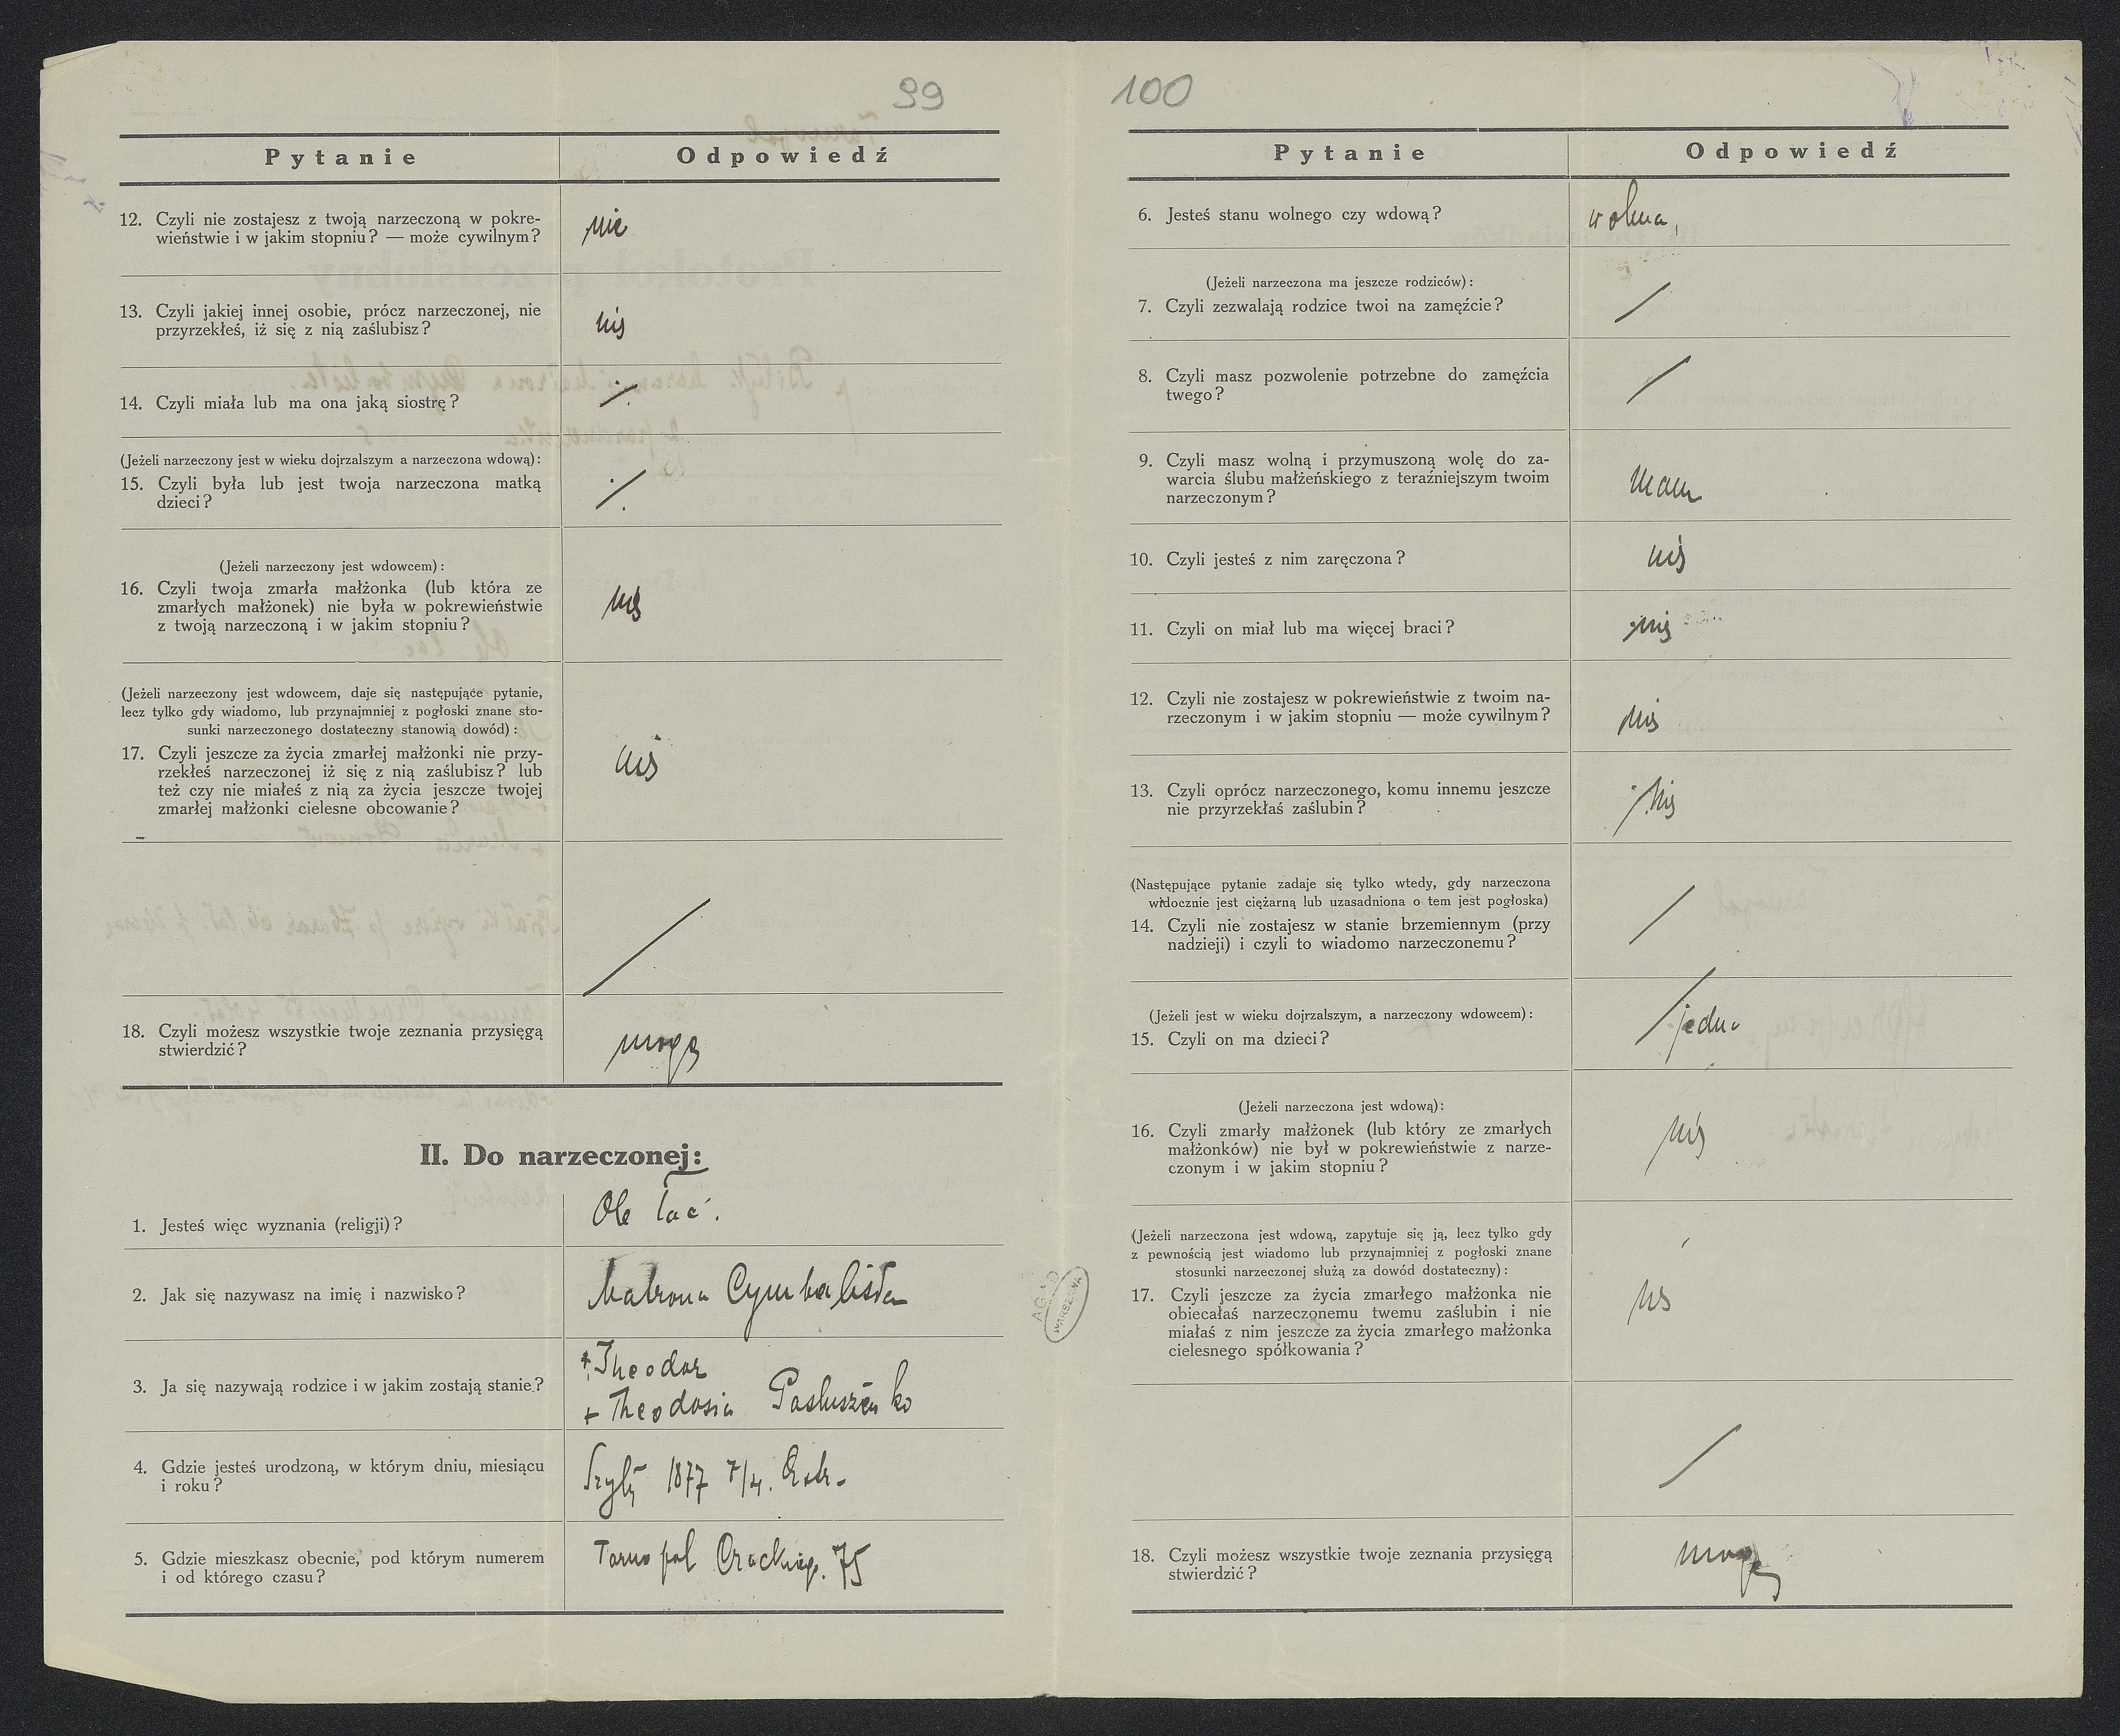 99
Pytanie Odpowiedź
12. Czyli nie zostajesz z twoją narzeczoną w pokre-
wieństwie i w jakim stopniu? — może cywilnym?
nie
13. Czyli jakiej innej osobie, prócz narzeczonej, nie
przyrzekłeś, iż się z nią zaślubisz?
nie
14. Czyli miała lub ma ona jaką siostrę?
(Jeżeli narzeczony jest w wieku dojrzalszym a narzeczona wdową):
15. Czyli była lub jest twoja narzeczona matką
dzieci?
(Jeżeli narzeczony jest wdowcem):
16. Czyli twoja zmarła małżonka (lub która ze
zmarłych małżonek) nie była w pokrewieństwie
z twoją narzeczoną i w jakim stopniu?
nie
(Jeżeli narzeczony jest wdowcem, daje się następujące pytanie,
lecz tylko gdy wiadomo, lub przynajmniej z pogłoski znane sto-
sunki narzeczonego dostateczny stanowią dowód):
17. Czyli jeszcze za życia zmarłej małżonki nie przy-
rzekłeś narzeczonej iż się z nią zaślubisz? lub
też czy nie miałeś z nią za życia jeszcze twojej
zmarłej małżonki cielesne obcowanie?
nie
18. Czyli możesz wszystkie twoje zeznania przysięgą
stwierdzić?
mogę
II. Do narzeczonej:
1. Jesteś więc wyznania (religji)?
Ob łać.
2. Jak się nazywasz na imię i nazwisko?
Matrona Cymbalista
3. Ja się nazywają rodzice i w jakim zostają stanie?
+ Theodor
+ Theodosia Pasłuszeńko
4. Gdzie jesteś urodzoną, w którym dniu, miesiącu
i roku?
1877 7/4.
5. Gdzie mieszkasz obecnie, pod którym numerem
i od którego czasu?
Tarnopol 75
100
Pytanie Odpowiedź
6. Jesteś stanu wolnego czy wdową?
wolna,
(Jeżeli narzeczona ma jeszcze rodziców):
7. Czyli zezwalają rodzice twoi na zamęźcie?
8. Czyli masz pozwolenie potrzebne do zamęźcia
twego?
9. Czyli masz wolną i przymuszoną wolę do za-
warcia ślubu małżeńskiego z teraźniejszym twoim
narzeczonym?
mam
10. Czyli jesteś z nim zaręczona?
nie
11. Czyli on miał lub ma więcej braci?
nie
12. Czyli nie zostajesz w pokrewieństwie z twoim na-
rzeczonym i w jakim stopniu — może cywilnym?
nie
13. Czyli oprócz narzeczonego, komu innemu jeszcze
nie przyrzekłaś zaślubin?
nie
(Następujące pytanie zadaje się tylko wtedy, gdy narzeczona
widocznie jest ciężarną lub uzasadniona o tem jest pogłoska)
14. Czyli nie zostajesz w stanie brzemiennym (przy
nadzieji) i czyli to wiadomo narzeczonemu?
(Jeżeli jest w wieku dojrzalszym, a narzeczony wdowcem):
15. Czyli on ma dzieci?
jedno
(Jeżeli narzeczona jest wdową):
16. Czyli zmarły małżonek (lub który ze zmarłych
małżonków) nie był w pokrewieństwie z narze-
czonym i w jakim stopniu?
nie
(Jeżeli narzeczona jest wdową, zapytuje się ją, lecz tylko gdy
z pewnością jest wiadomo lub przynajmniej z pogłoski znane
stosunki narzeczonej służą za dowód dostateczny):
17. Czyli jeszcze za życia zmarłego małżonka nie
obiecałaś narzeczonemu twemu zaślubin i nie
miałaś z nim jeszcze za życia zmarłego małżonka
cielesnego spółkowania?
nie
18. Czyli możesz wszystkie twoje zeznania przysięgą
stwierdzić?
mogę
AGAD
WARSZAWA